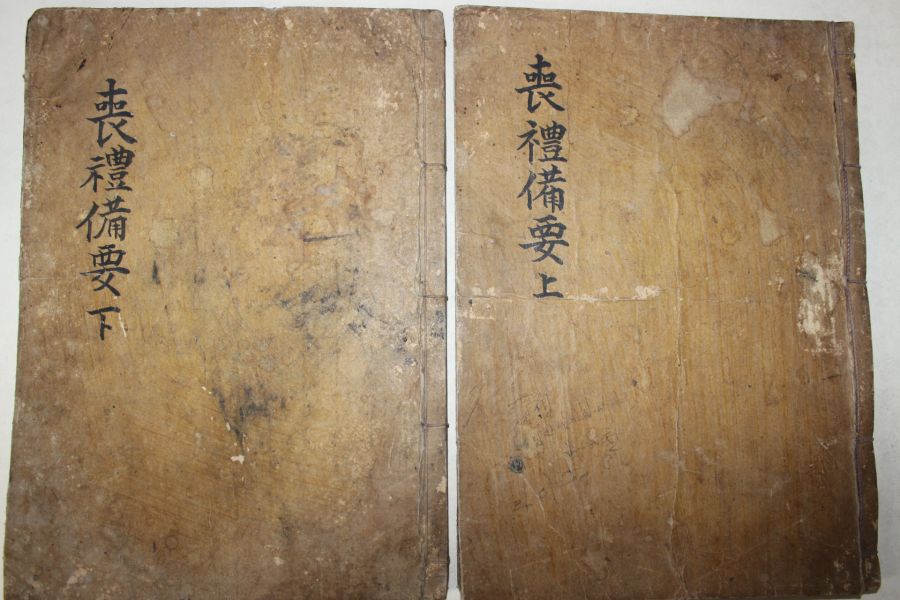 喪禮備要上
喪禮備要下